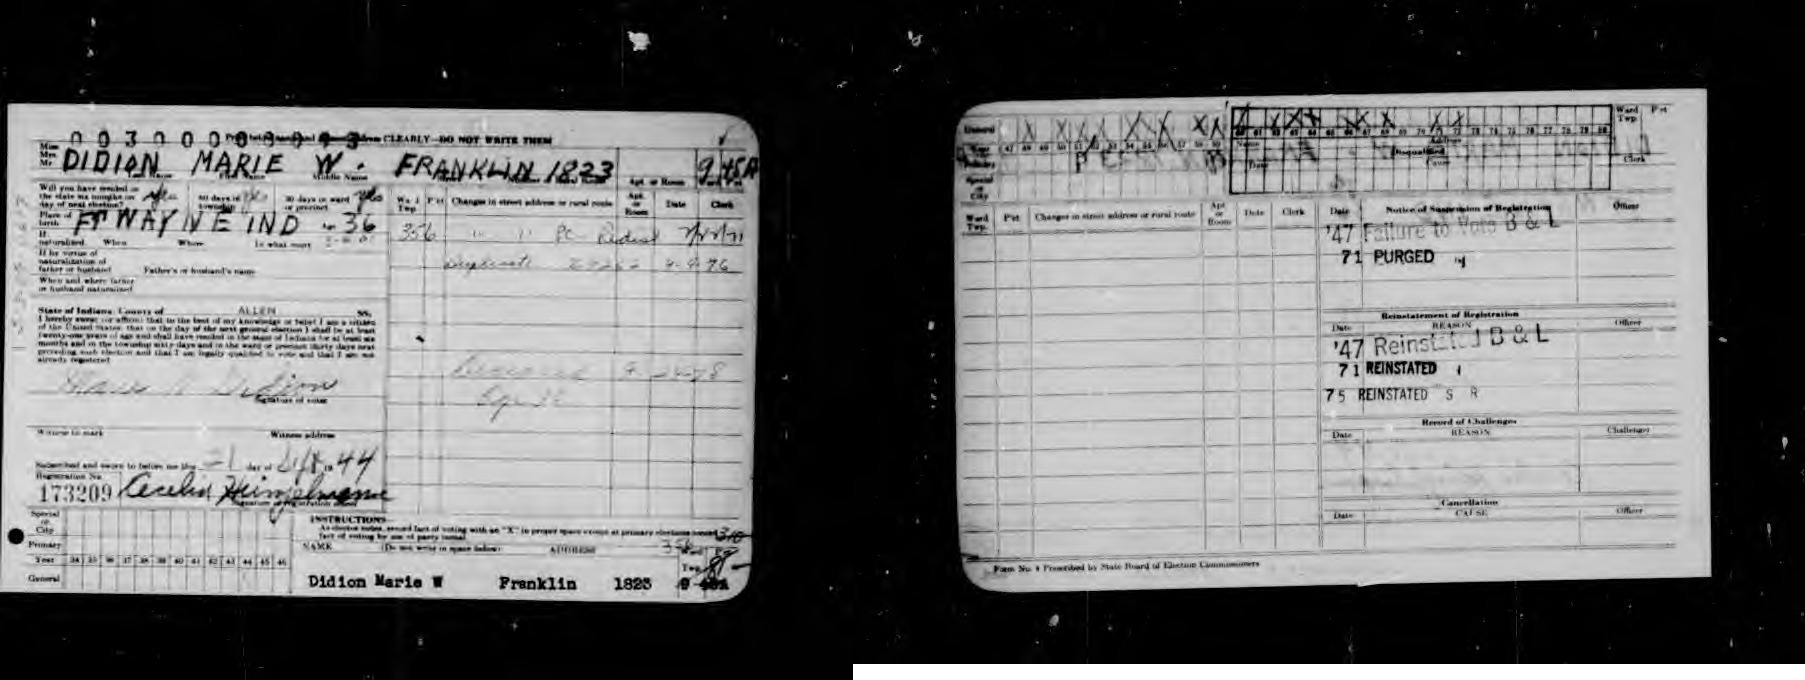 0 0 3 0 0 0 0
CLEARLY—DO NOT WRITE THEM
Miss
Mrs.
Mr.
DIDION MARIE W. FRANKLIN 1823 9 45A
Middle Name
Apt. or Room
Will you have resided in
the state six months on
day of next election?
60 days in
township
30 days in ward
or precinct
Yes
Place of
birth
FT WAYNE IND 36
If
naturalized When Where In what court
If by virtue of
naturalization of
father or husband Father's or husband's name
When and where father
or husband naturalized
State of Indiana, County of ALLEN SS.
I hereby swear (or affirm) that to the best of my knowledge or belief I am a citizen
of the United States; that on the day of the next general election I shall be at least
twenty-one years of age and shall have resided in the state of Indiana for at least six
months and in the township sixty days and in the ward or precinct thirty days next
preceding such election and that I am legally qualified to vote and that I am not
already registered
Marie W Didion
Signature of voter
Witness to mark Witness address
Subscribed and sworn to before me this 21 day of 19 44
Registration No.
173209 Cecelia
Signature of registration officer
Ward
Twp. P'ct Changes in street address or rural route Apt.
or
Room Date Clerk
356 " " PC
Duplicate 4-9-76
Special
or
City
Primary
Year 34 35 36 37 38 39 40 41 42 43 44 45 46
General
INSTRUCTIONS—
As elector votes, record fact of voting with an "X" in proper space except at primary elections record
fact of voting by use of party initial
NAME (Do not write in space below) ADDRESS 356
Didion Marie W Franklin 1823 9 45A
General
Year 47 48 49 50 51 52 53 54 55 56 57 58 59 60 61 62 63 64 65 66 67 68 69 70 71 72 73 74 75 76 77 78 79 80
Special
or
City
Name Address
Date Disqualified
Cause
Ward
Twp. P'ct
Clerk
Ward
Twp. P'ct Changes in street address or rural route Apt
or
Room Date Clerk
Date Notice of Suspension of Registration Officer
'47 Failure to Vote B & L
71 PURGED
Reinstatement of Registration
Date REASON Officer
'47 Reinstated B & L
71 REINSTATED
75 REINSTATED S R
Record of Challenges
Date REASON Challenger
Cancellation
Date CAUSE Officer
Form No. 4 Prescribed by State Board of Election Commissioners